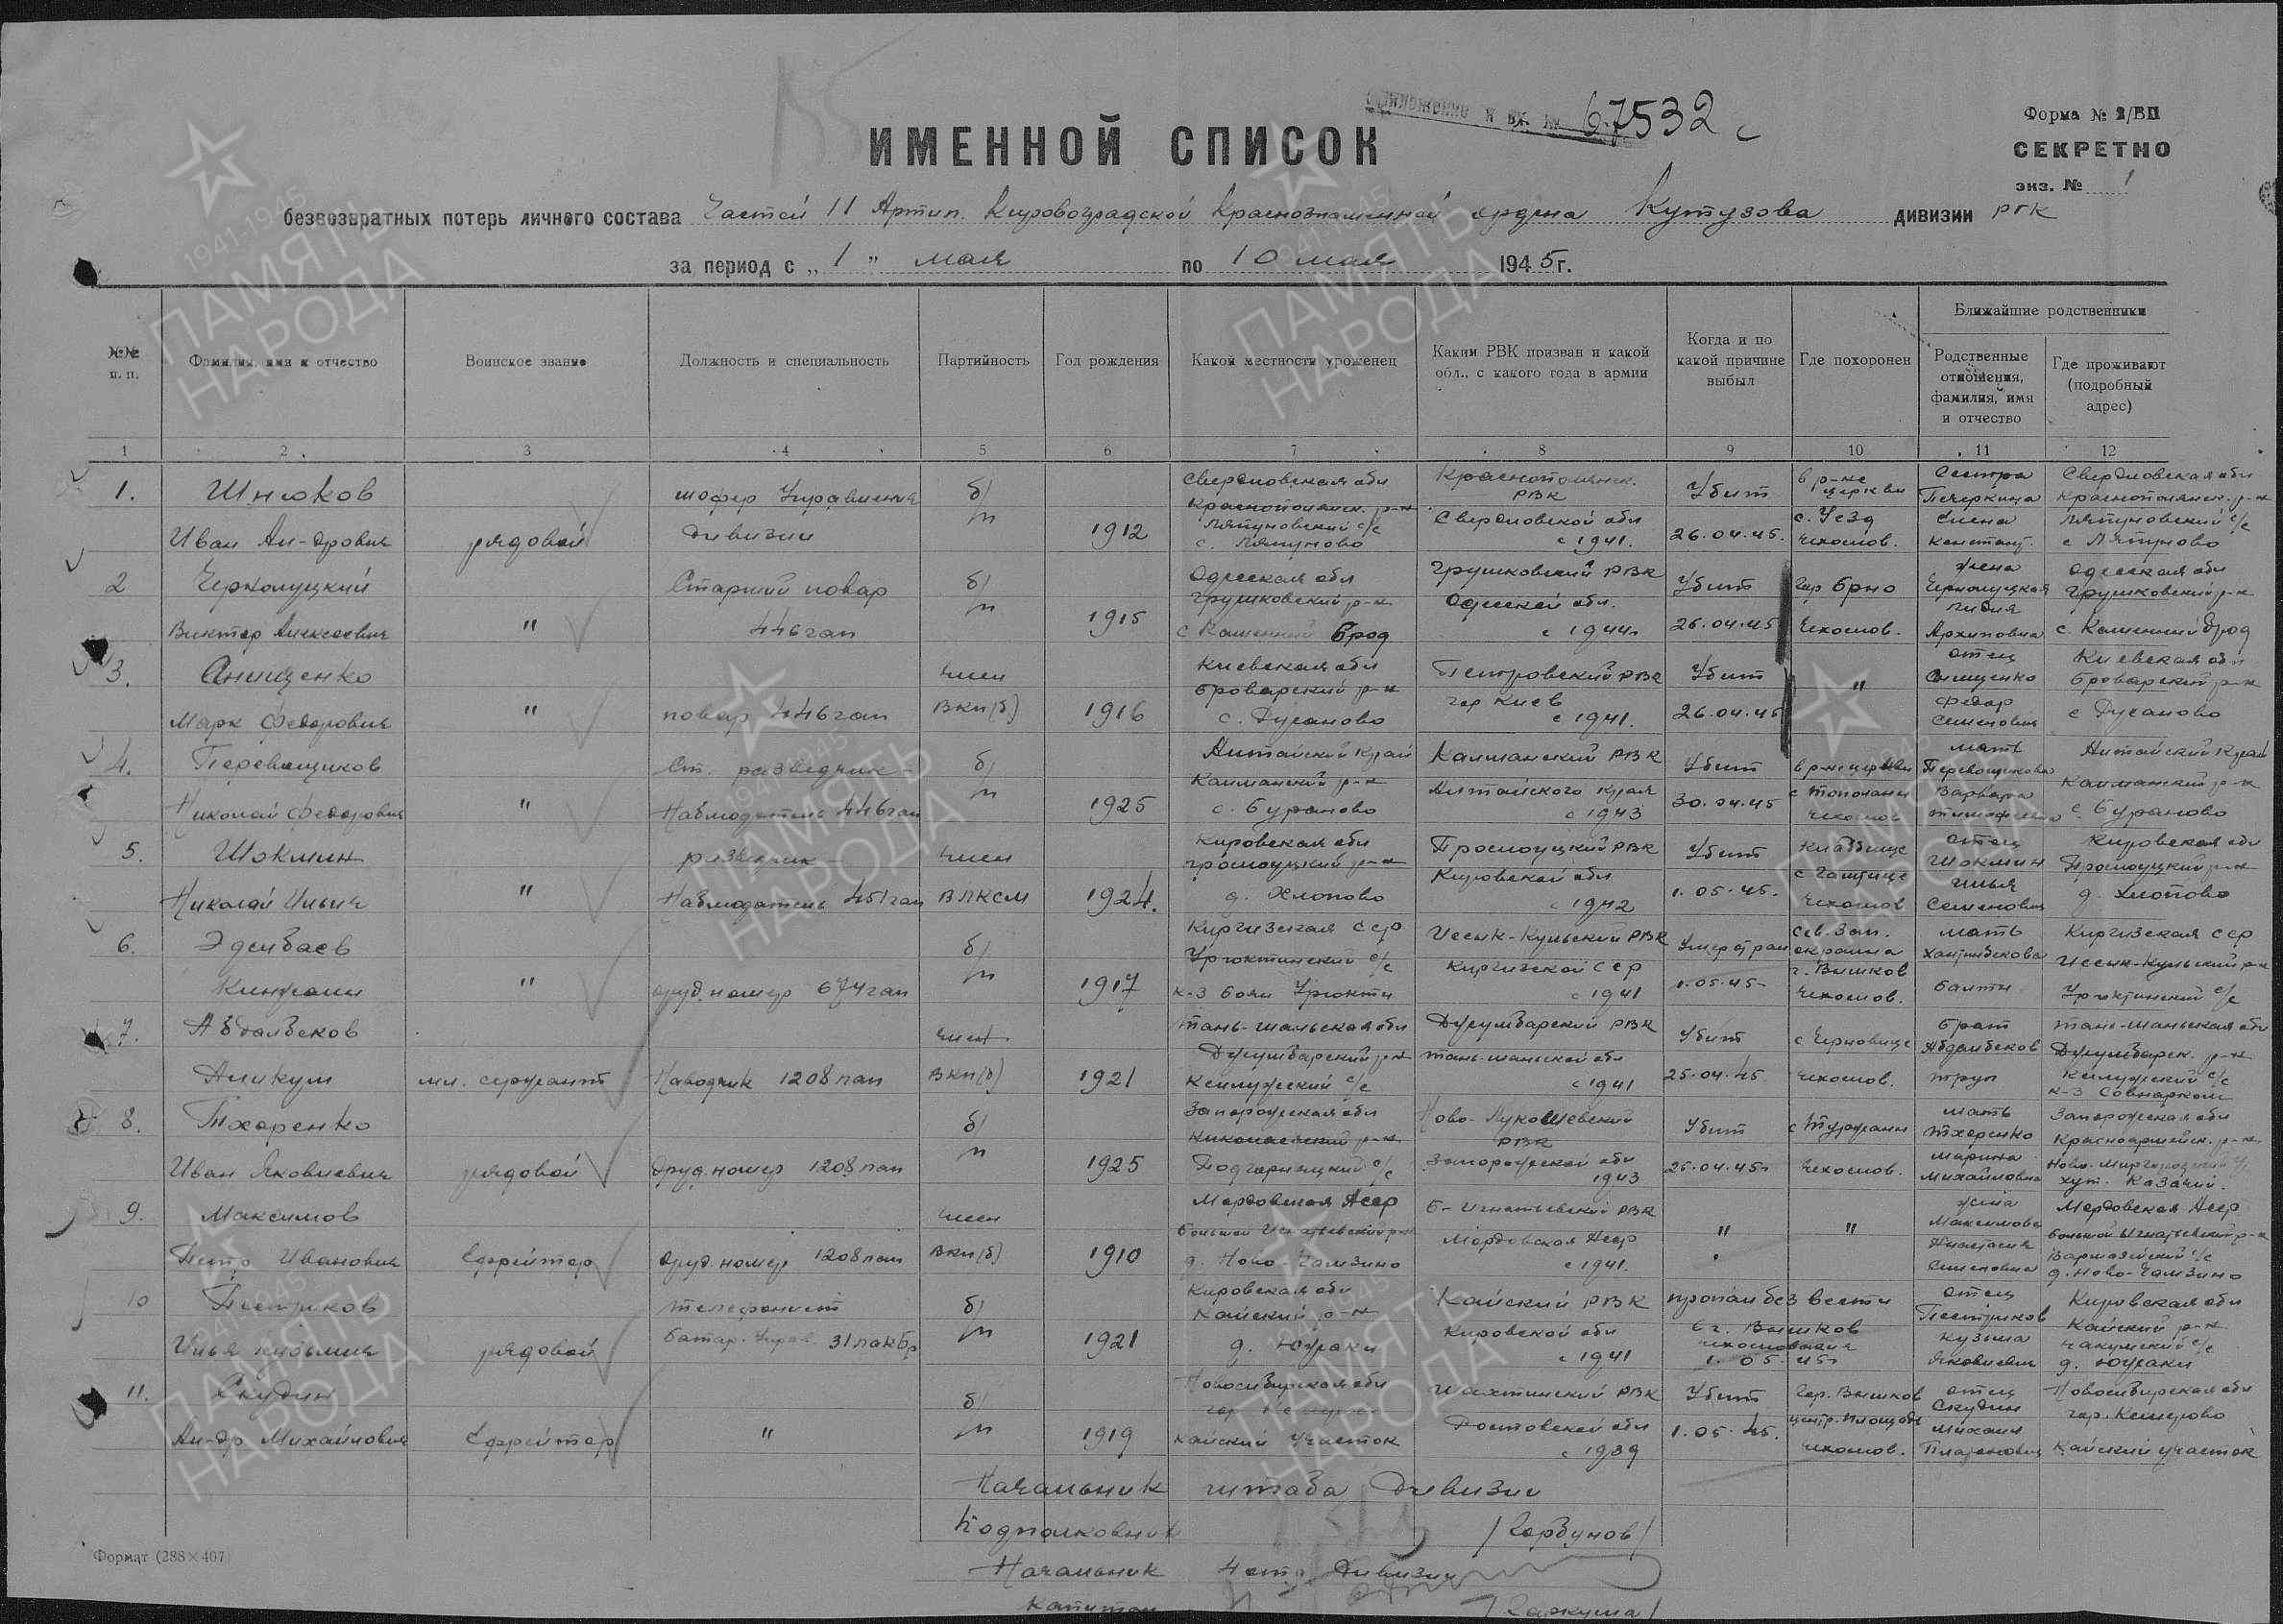 Приложение к вх. № 67532 с
Форма № 2/БП
ИМЕННОЙ СПИСОК
СЕКРЕТНО
экз. № 1
безвозвратных потерь личного состава Частей 11 Артил. Кировоградской Краснознаменной ордена Кутузова дивизии РГК
за период с „1" мая по 10 мая 1945 г.
№№ п. п.
Фамилия, имя и отчество
Воинское звание
Должность и специальность
Партийность
Год рождения
Какой местности уроженец
Каким РВК призван и какой обл., с какого года в армии
Когда и по какой причине выбыл
Где похоронен
Ближайшие родственники
Родственные отношения, фамилия, имя и отчество
Где проживают (подробный адрес)
1 2 3 4 5 6 7 8 9 10 11 12
1. Шнюков шофер Управления б/ Свердловская обл Краснополянск. РВК Убит в р-не церкви Сестра Печеркина Свердловская обл
Иван Ан-дрович рядовой дивизии п 1912 Краснополянск. р-н Ляпуновский с/с с. Ляпуново Свердловской обл с 1941. 26.04.45. с. Уезд Чехослов. Елена Констант. Краснополянск. р-н Ляпуновский с/с с Ляпуново
2 Чернолуцкий Старший повар б/ Одесская обл Грушковский РВК Убит гор Брно жена Чернолуцкая Одесская обл
Виктор Алексеевич " 446 гап п 1915 Грушковский р-н с Каменный Брод Одесской обл. с 1944 26.04.45 Чехослов. Лидия Архиповна Грушковский р-н с. Каменный Брод
3. Онищенко член Киевская обл Петровский РВК Убит " отец Онищенко Киевская обл
Марк Федорович " повар 446 гап ВКП(б) 1916 Броварский р-н гор Киев с 1941. 26.04.45 Федор Семенович Броварский р-н
4. Перевощиков Ст. разведчик- б/ Алтайский край Калманский РВК Убит в р-не церкви мать Перевощикова Алтайский край
Николай Федорович " Наблюдатель 446 гап п 1925 Калманский р-н с. Бураново Алтайского края с 1943 30.04.45 Чехослов Варвара Тимофеевна Калманский р-н с. Бураново
5. Шокмин разведчик- член Кировская обл Просницкий РВК Убит кладбище отец Шокмин Кировская обл
Николай Ильич " Наблюдатель 451 гап ВЛКСМ 1924. д. Хлопово Кировской обл с 1942 1.05.45. Чехослов Илья Семенович д. Хлопово
6. Эдилбаев б/ Киргизская сср Иссык-Кульский РВК Умер от ран Сев. Зап. окраина мать Киргизская сср
" оруд. номер 674 гап п 1917 Уроктинский с/с Киргизской сср с 1941 1.05.45 г. Вишков Чехослов. Иссык-Кульский р-н Уроктинский с/с
7. Абдалбеков член Тань-Шаньская обл Джумгарский РВК Убит с Черновице брат Абдалбеков Тань-Шаньская обл
Аликум мл. сержант Наводчик 1208 пап ВКП(б) 1921 Джумгарский р-н Тань-Шаньской обл с 1941 25.04.45. Чехослов. Джумгарск. р-н к-з Совнарком
8. Тхоренко б/ Запорожская обл Убит с Туржани мать Тхоренко Запорожская обл
Иван Яковлевич рядовой Оруд. номер 1208 пап п 1925 Запорожской обл 1943 25.04.45 Чехослов. Марина Михайловна Красноармейск. р-н хут. Казачий.
9. Максимов член Мордовская Асср б-Игнатьевский РВК " " жена Максимова Мордовская Асср
Петр Иванович Ефрейтор Оруд. номер 1208 пап ВКП(б) 1910 большой Игнатьевский р-н д. Ново-Чамзино Мордовская Асср с 1941. Анастасия Семеновна большой Игнатьевский р-н д. Ново-Чамзино
10 Пестриков телефонист б/ Кировская обл Кайский РВК пропал без вести отец Пестриков Кировская обл
Илья Кузьмич рядовой батар. Управ. 31 пакбр п 1921 Кайский р-н Кировской обл с 1941 в г. Вышков 1.05.45 Кузьма Яковлевич Кайский р-н
11. Скудин б/ Новосибирская обл Шахтинский РВК Убит Гор. Вышков отец Скудин Новосибирская обл
Ал-др Михайлович Ефрейтор " п 1919 Кайский участок Ростовской обл с 1939 1.05.45. центр. площадь Чехослов. Михаил Платонович гор. Кемерово Кайский участок
Начальник штаба дивизии
Подполковник /Горбунов/
Начальник 4 отд. дивизии
капитан
Формат (288×407)
ПАМЯТЬ НАРОДА
1941 1945